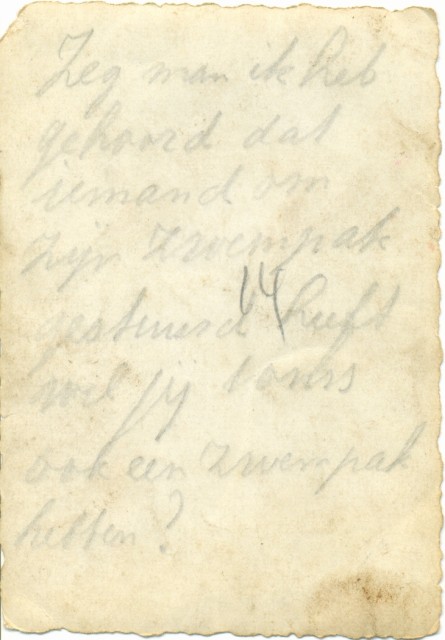 Zeg man ik heb
gehoord dat
iemand om
zijn zwempak
14
gestuurd heeft
wil jy
ook een zwempak
hebben?